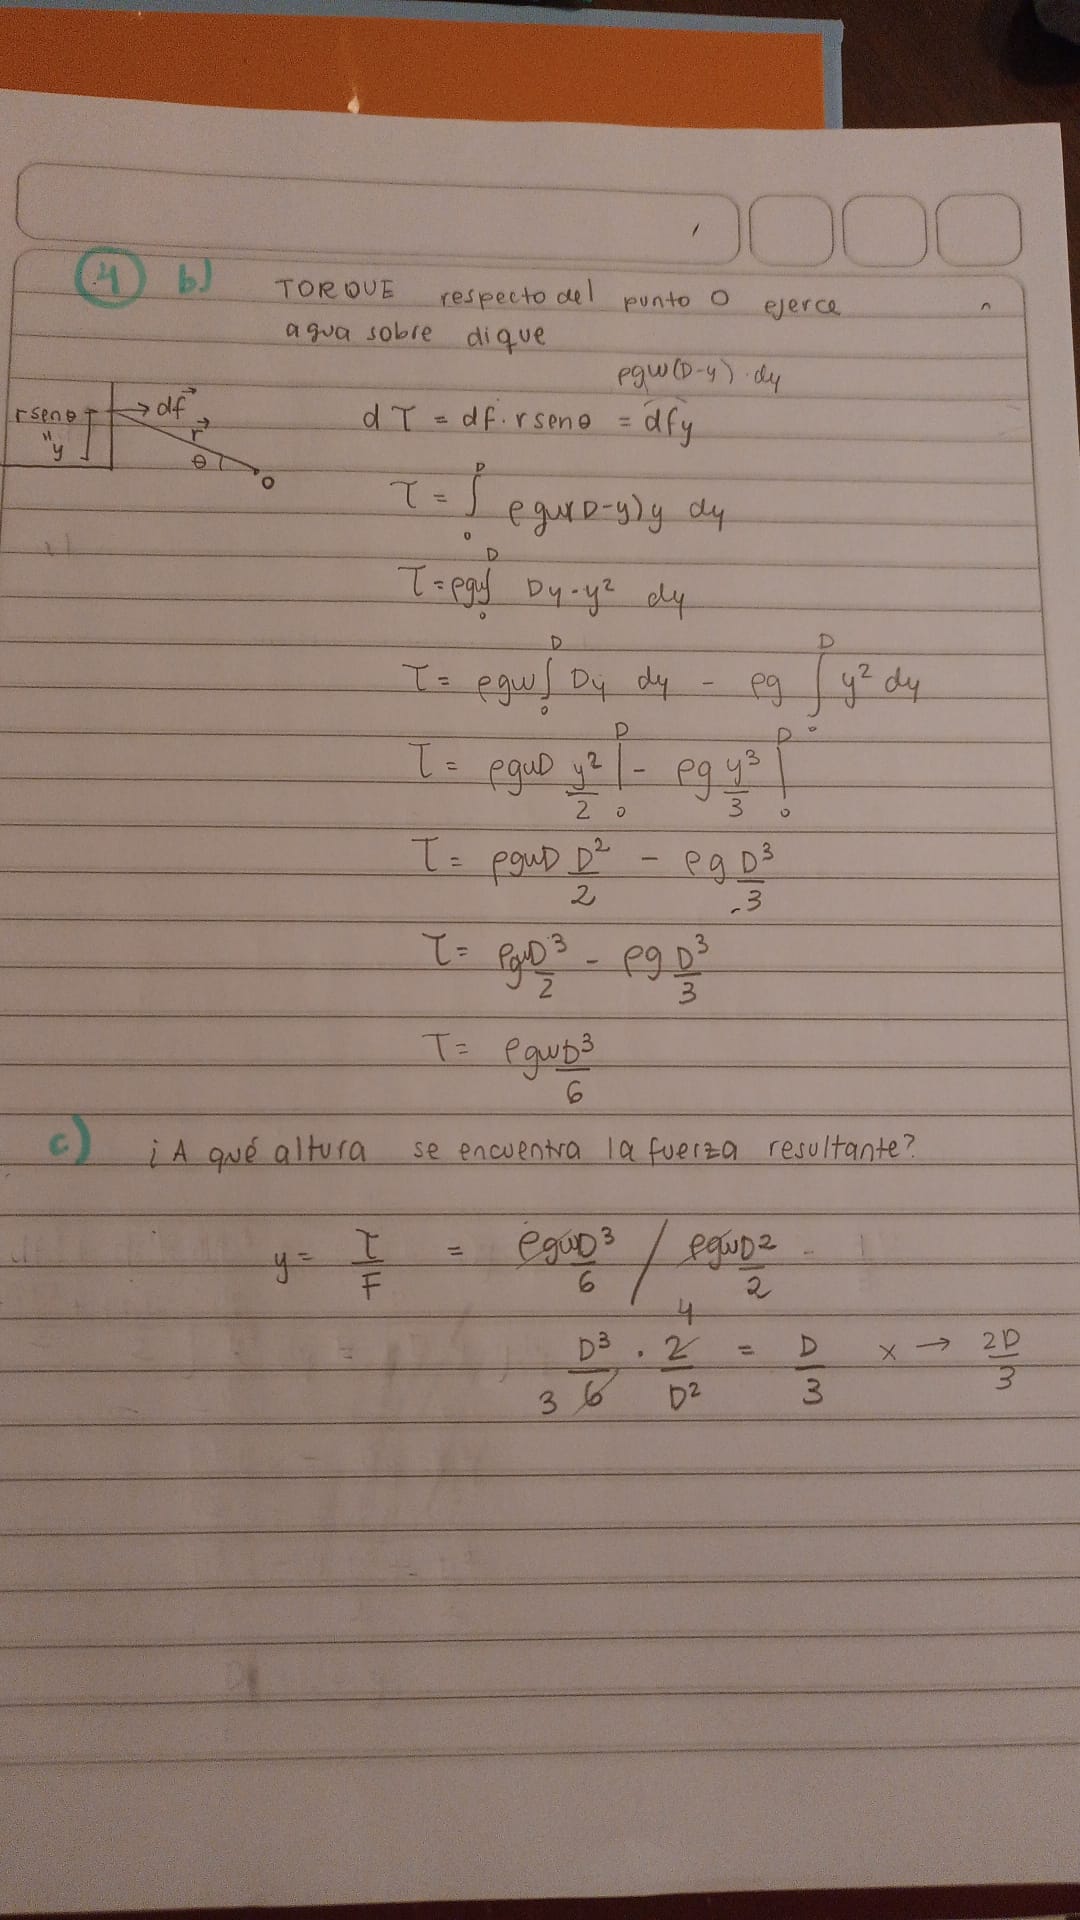 4 b) TORQUE respecto del punto O ejerce
agua sobre dique
ρgw(D-y)·dy
df
r senθ
"y
r
θ
O
dT = df·r senθ = dfy
T = ∫₀ᴰ ρgw(D-y)y dy
T = ρgw∫₀ᴰ Dy-y² dy
T = ρgw∫₀ᴰ Dy dy - ρg ∫₀ᴰ y² dy
T = ρgwD y²/2 |₀ᴰ - ρg y³/3 |₀ᴰ
T = ρgwD D²/2 - ρg D³/3
T = ρgwD³/2 - ρg D³/3
T = ρgwD³/6
c) ¿A qué altura se encuentra la fuerza resultante?
y = T/F = ρgwD³/6 / ρgwD²/2
= 3 D³/6 · 2/D² = D/3 x → 2D/3